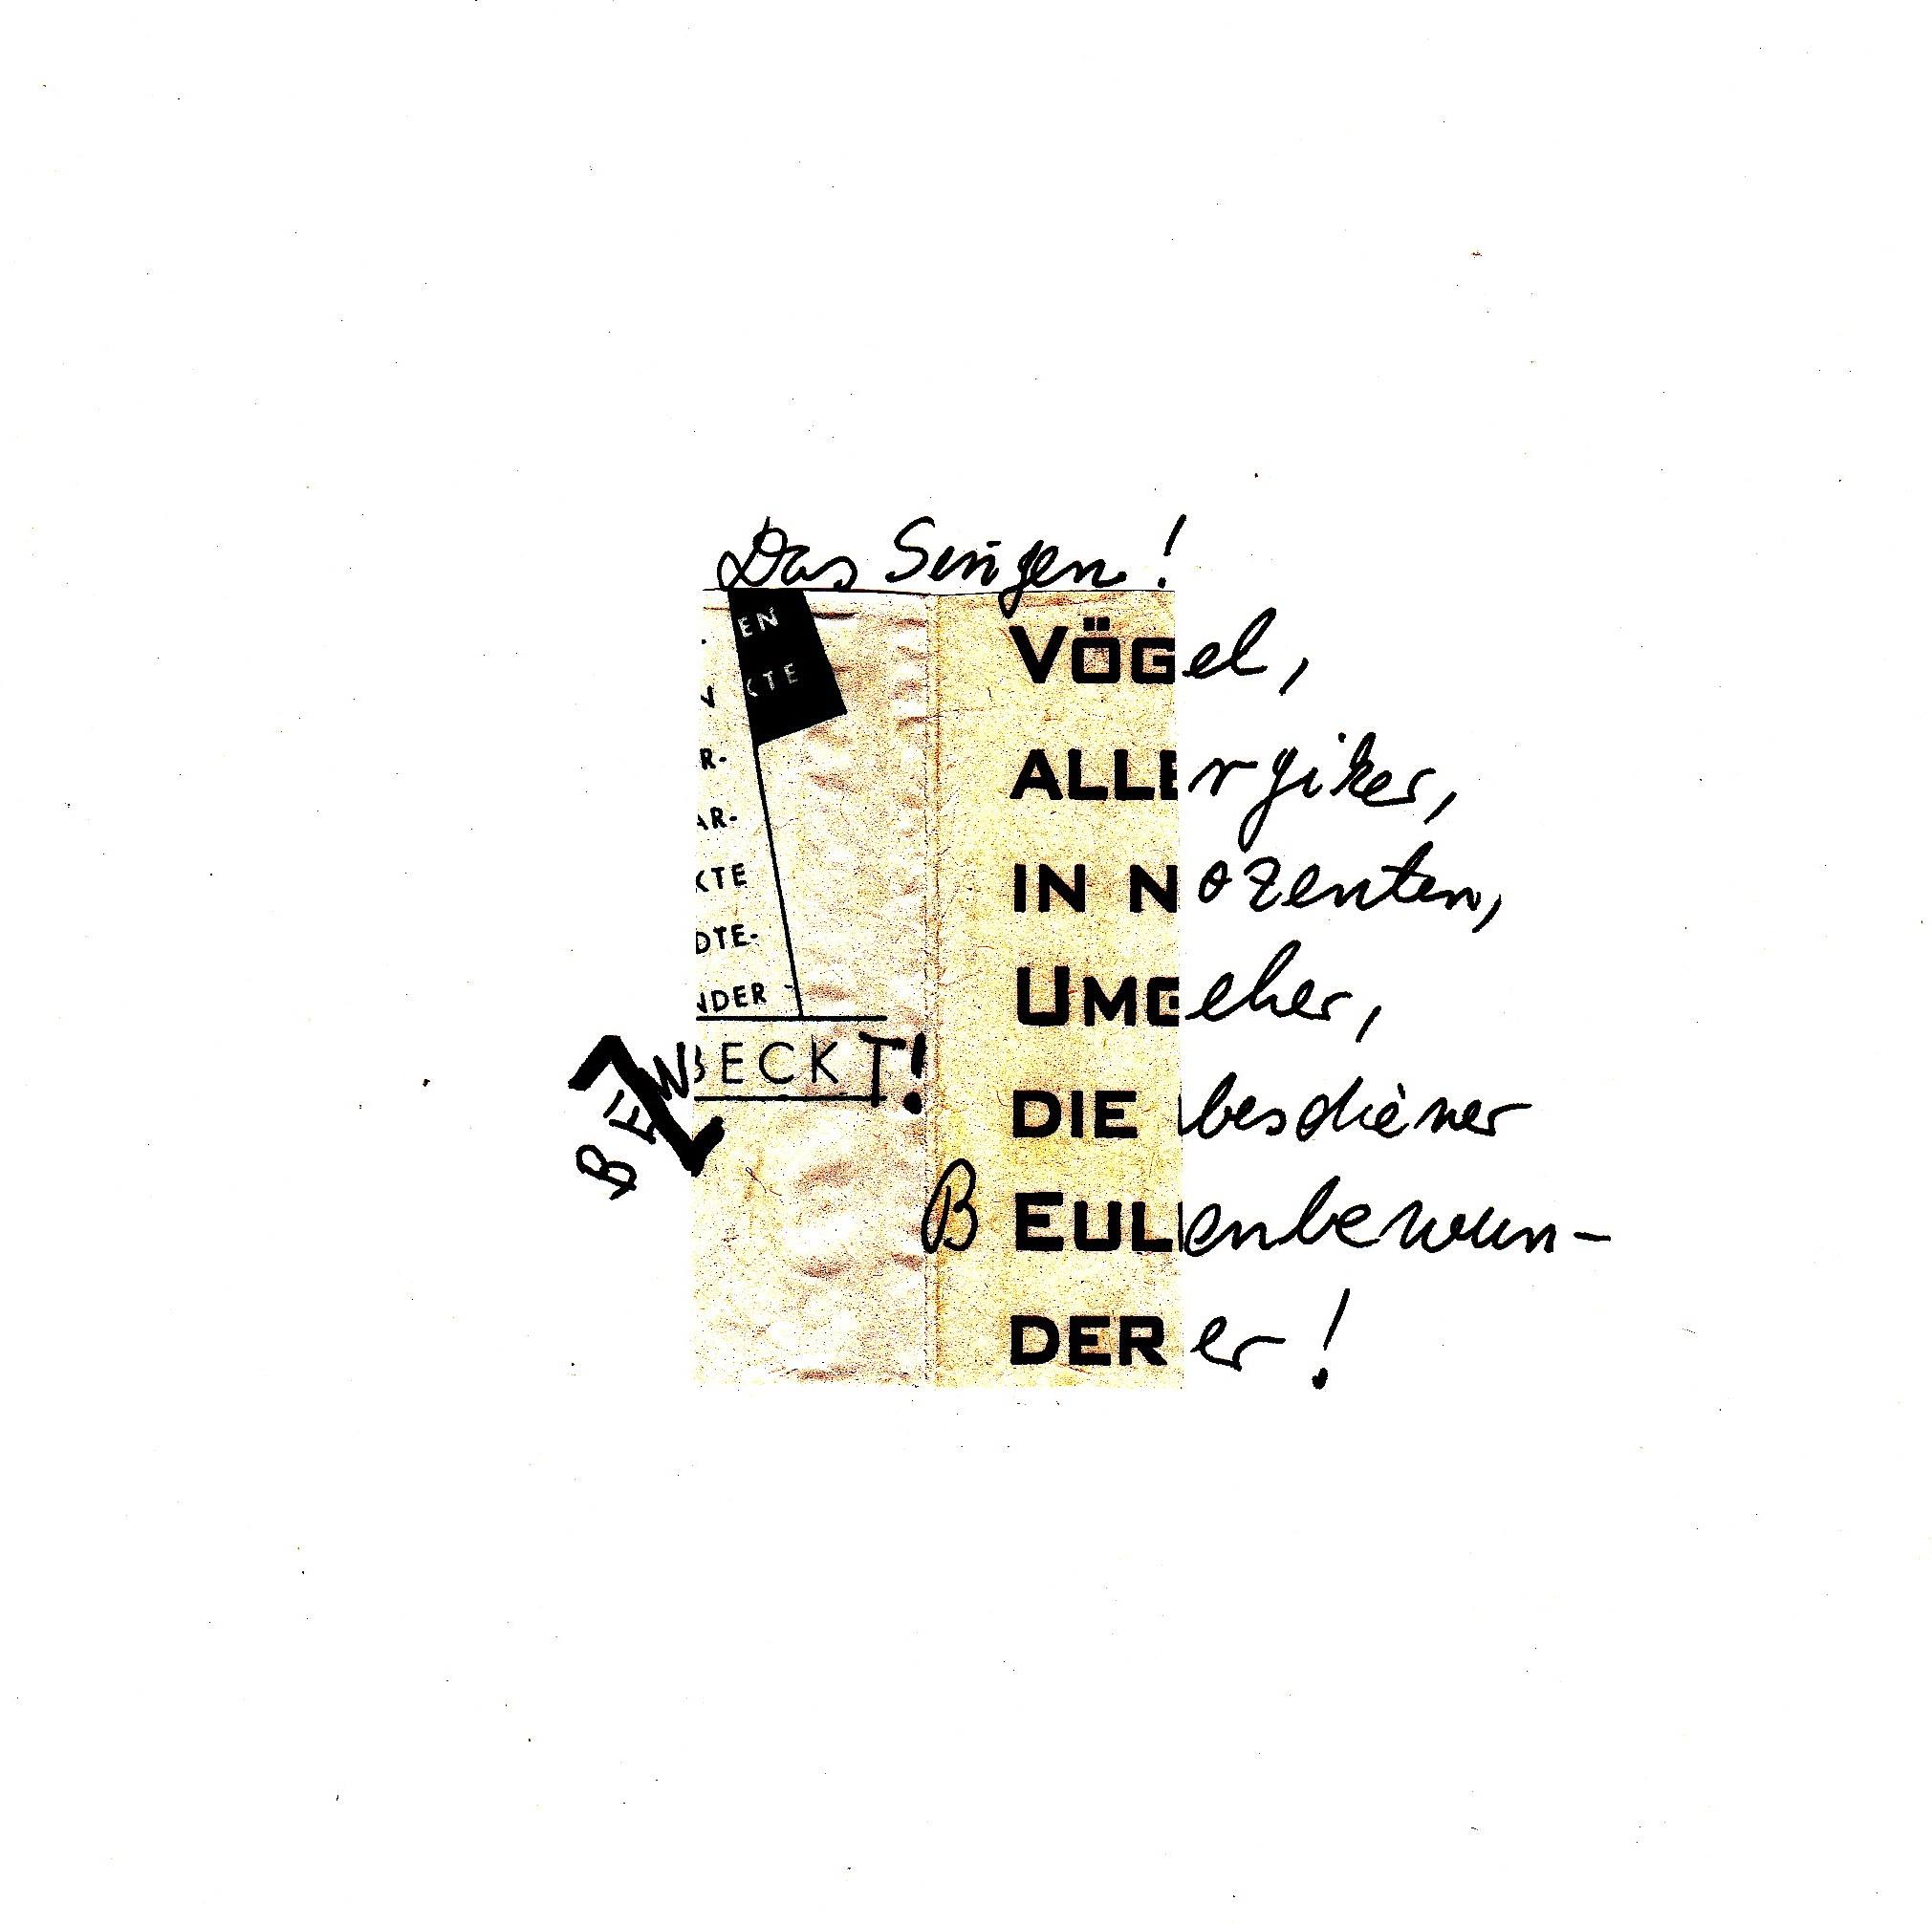 Das Singen!
EN
KTE
N
R-
AR-
KTE
DTE-
NDER
BEW
BECKT!
VÖGel,
ALLErgiker,
IN Nozenten,
UMGeher,
DIE besdiener
B EULenbewun-
DER er!